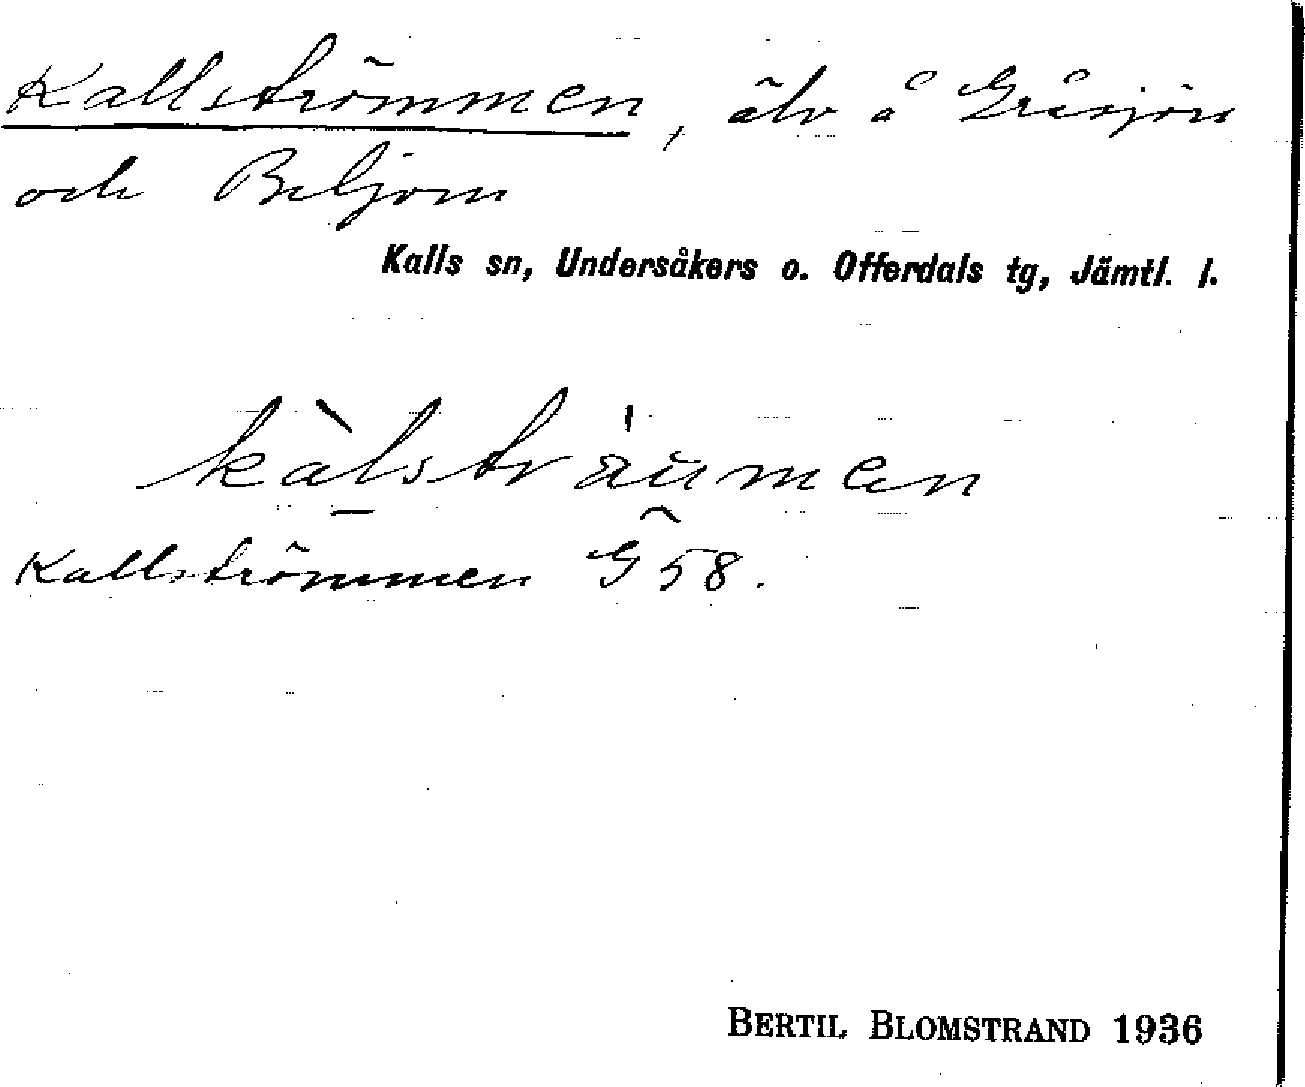 Kallströmmen, älv å Gråsjön
och Beljom
Kalls sn, Undersåkers o. Offerdals tg, Jämtl. l.
kàlsträumen
Kallströmmen G 58.
BERTIL BLOMSTRAND 1936